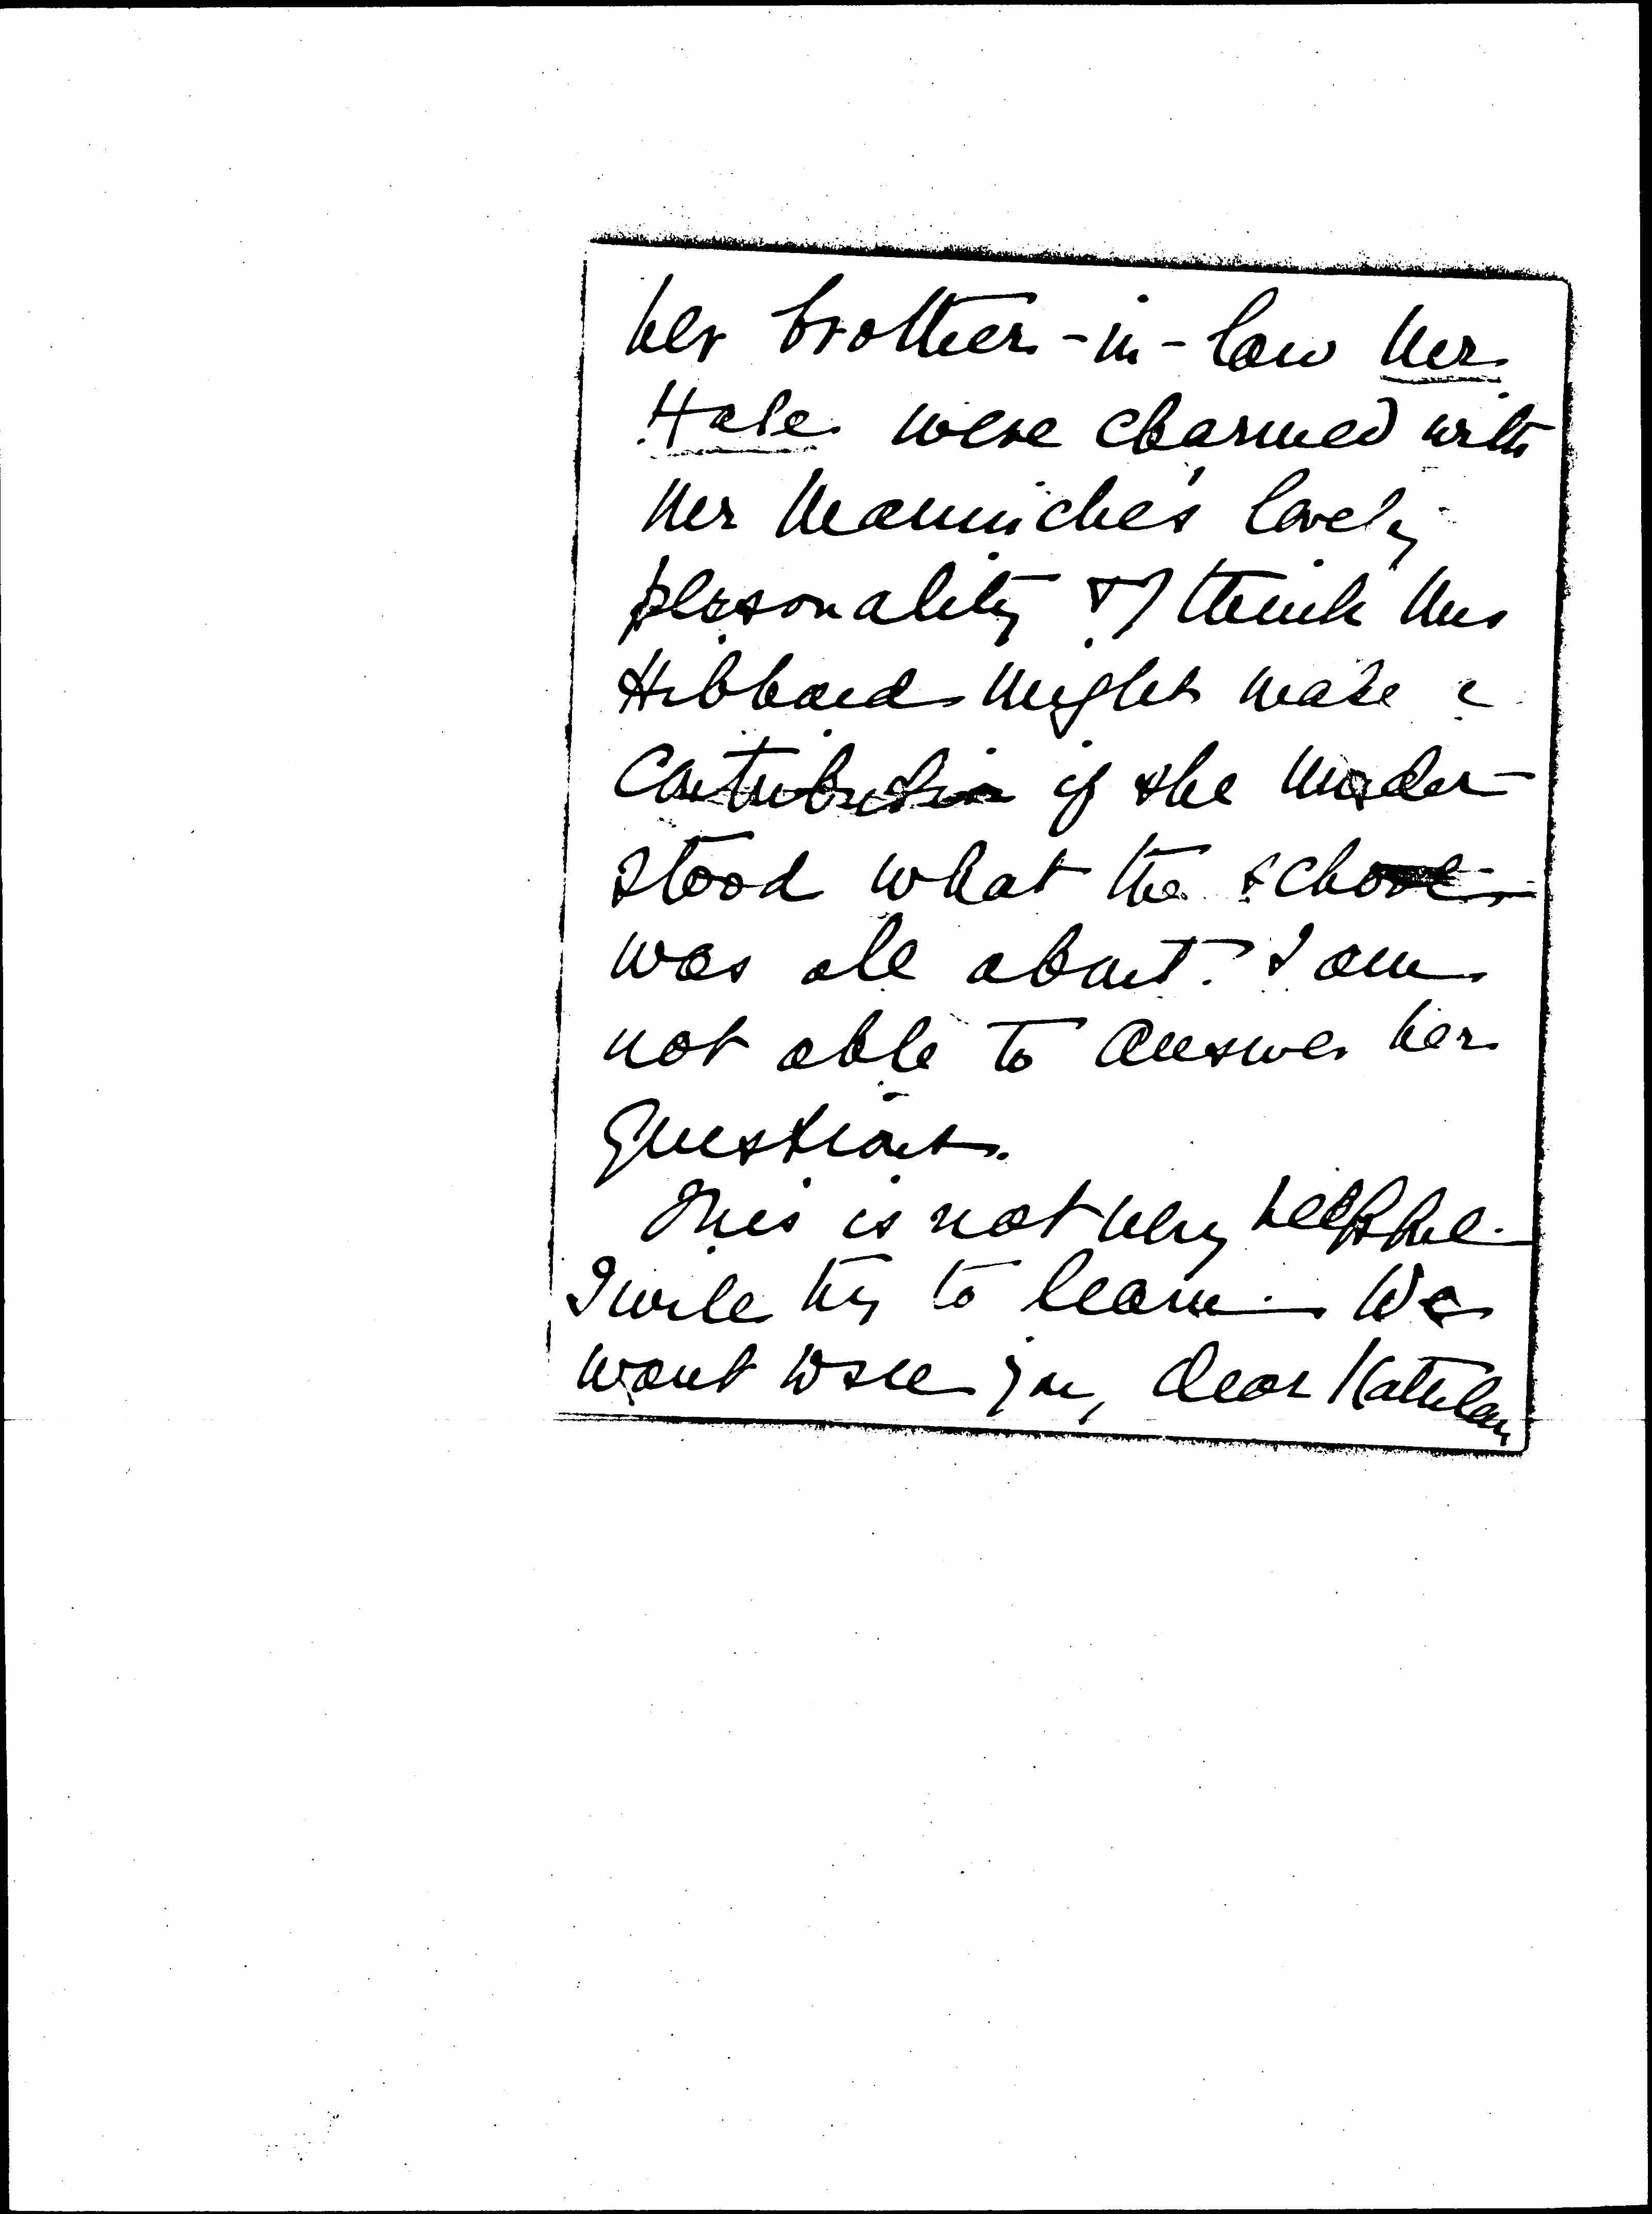 her brother-in-law Mr
Hale were charmed with
Mr Manniche's lovely
personality & I think Mrs
Hibbard might make a
contribution if she under-
stood what the school
was all about. I am
not able to answer her
questions.
This is not very helpful.
I will try to learn. We
want to see you, dear Kathleen